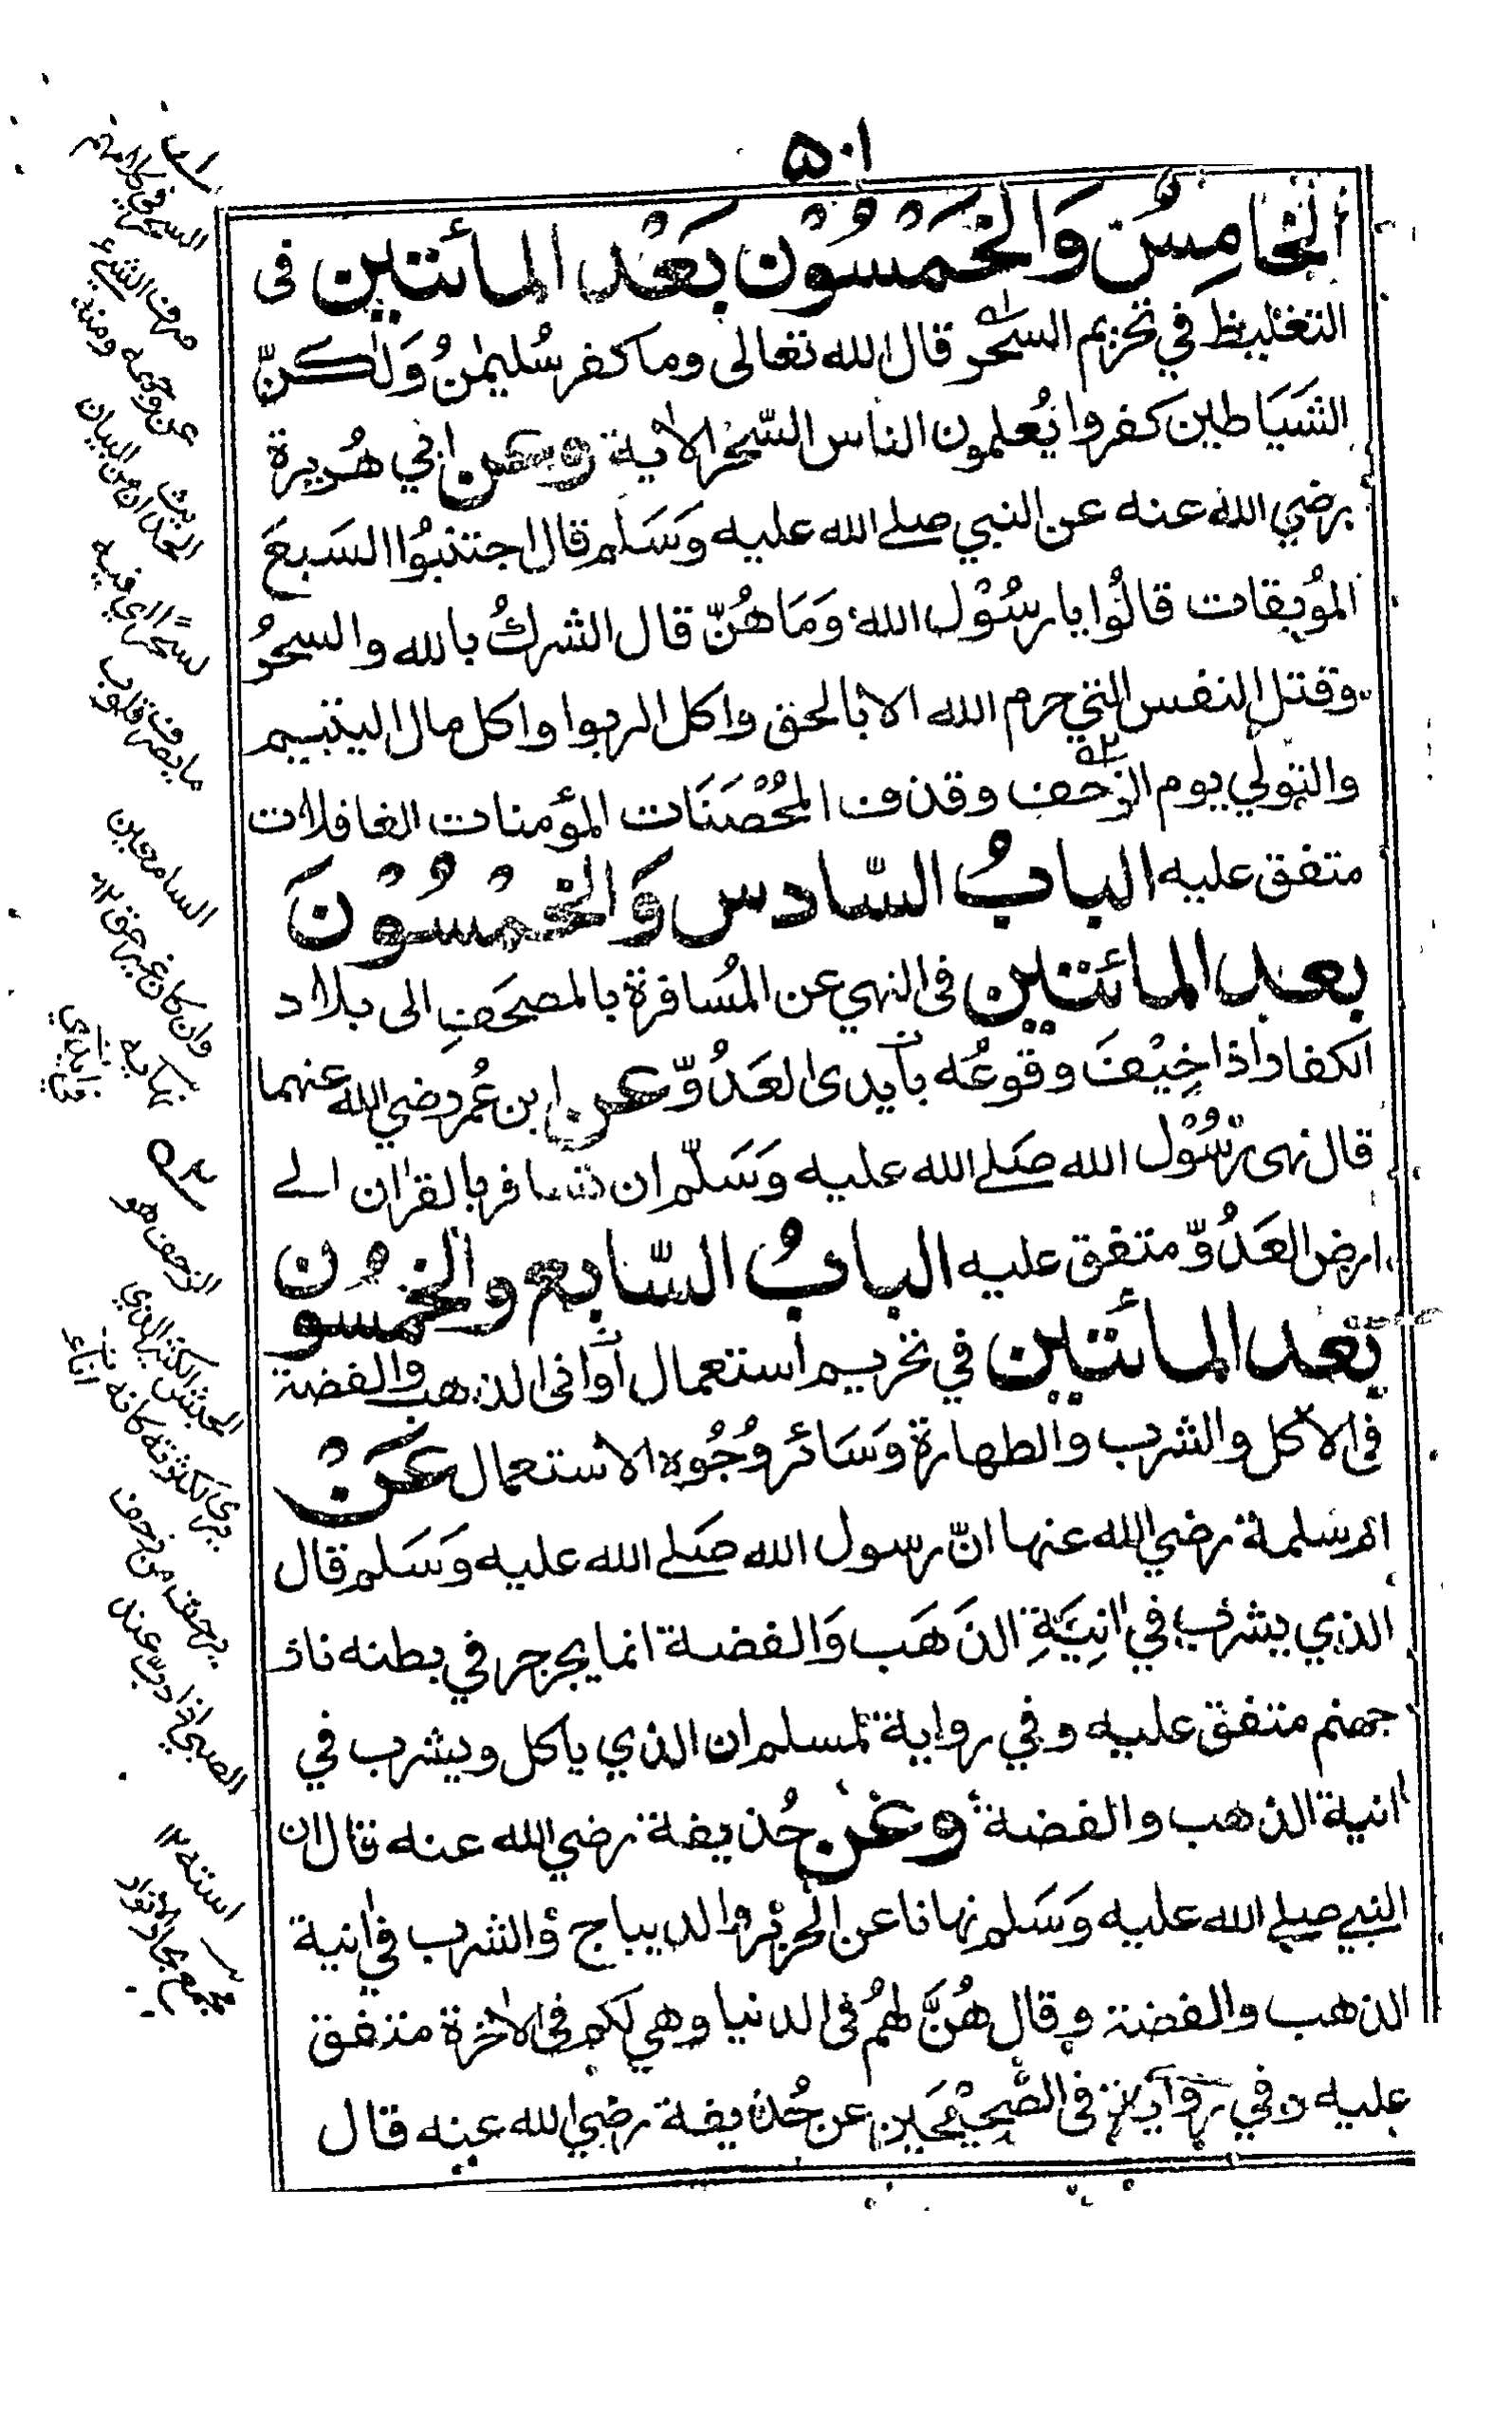 ٥٠١
الخامِسُ وَالخَمْسُوْن بَعْد المائتين فى
التغليظ في تحريم السحر قال الله تعالى وما كفر سُليمٰنُ وَلٰكنّ
الشَيَاطين كفروا يُعلمون الناس السّحر الاية وعن ابي هُريرة
رضي الله عنه عن النبي صلے الله عليه وَسَلم قال اجتنبُوا السَبعَ
الموُبِقات قالوُا يا رسُوْل الله وَمَا هُنّ قال الشركُ بالله والسحرُ
وقتل النفس التي حرم الله الا بالحق واكل الربوا واكل مال اليتيم
والتولي يوم الزحف وقذف المُحْصَنَات المؤمنات الغافلات
متفق عليه البابُ السّادس وَالخمْسُوْنَ
بعد المائتين فى النهي عن المُسافرة بالمصحَفِ الى بلاد
الكفار اذا خِيْفَ وقوعُه بأيدى العَدُوّ عن ابن عُمر رضي الله عنهما
قال نهى رَسُوْل الله صَلے الله عليه وَسَلّم ان تسافر بالقرٰان الے
ارض العَدُوّ متفق عليه البابُ السّابع والخمسُون
بَعد المائتين في تحريم استعمال أوانى الذهب والفضة
فى الاكل والشرب والطهارة وَسَائر وُجُوه الاستعمال عَنْ
ام سلمة رضي الله عنها انّ رسول الله صَلے الله عليه وَسَلم قال
الذي يشرب في انِيَةِ الذَهَب وَالفضة انما يجرجر في بطنه نار
جهنم متفق عليه وفي رواية لمسلم ان الذي ياكل ويشرب في
انية الذهب والفضة وعن حُذيفة رضي الله عنه قال ان
النبي صلے الله عليه وَسَلم نهانا عن الحرير والديباج والشرب في انية
الذهب والفضة وقال هُنَّ لهُم فى الدنيا وهي لكم فى الاخرة متفق
عليه وفي رواية فى الصَّحِيْحَين عن حُذيفة رضي الله عنه قال
السحر في كلامهم
صرف الشيء
عن وجهه ومنه
الحديث ان من البيان
لسحرًا اي فيه
ما يصرف قلوب
السامعين
وان كان غير حق ١٢
نهايه
الزحف هو
الجيش الكثير الذي
يرى لكثرته كانه
يزحف من زحف
الصبي اذا دبّ عند
استه ١٢
مجمع بحار الانوار